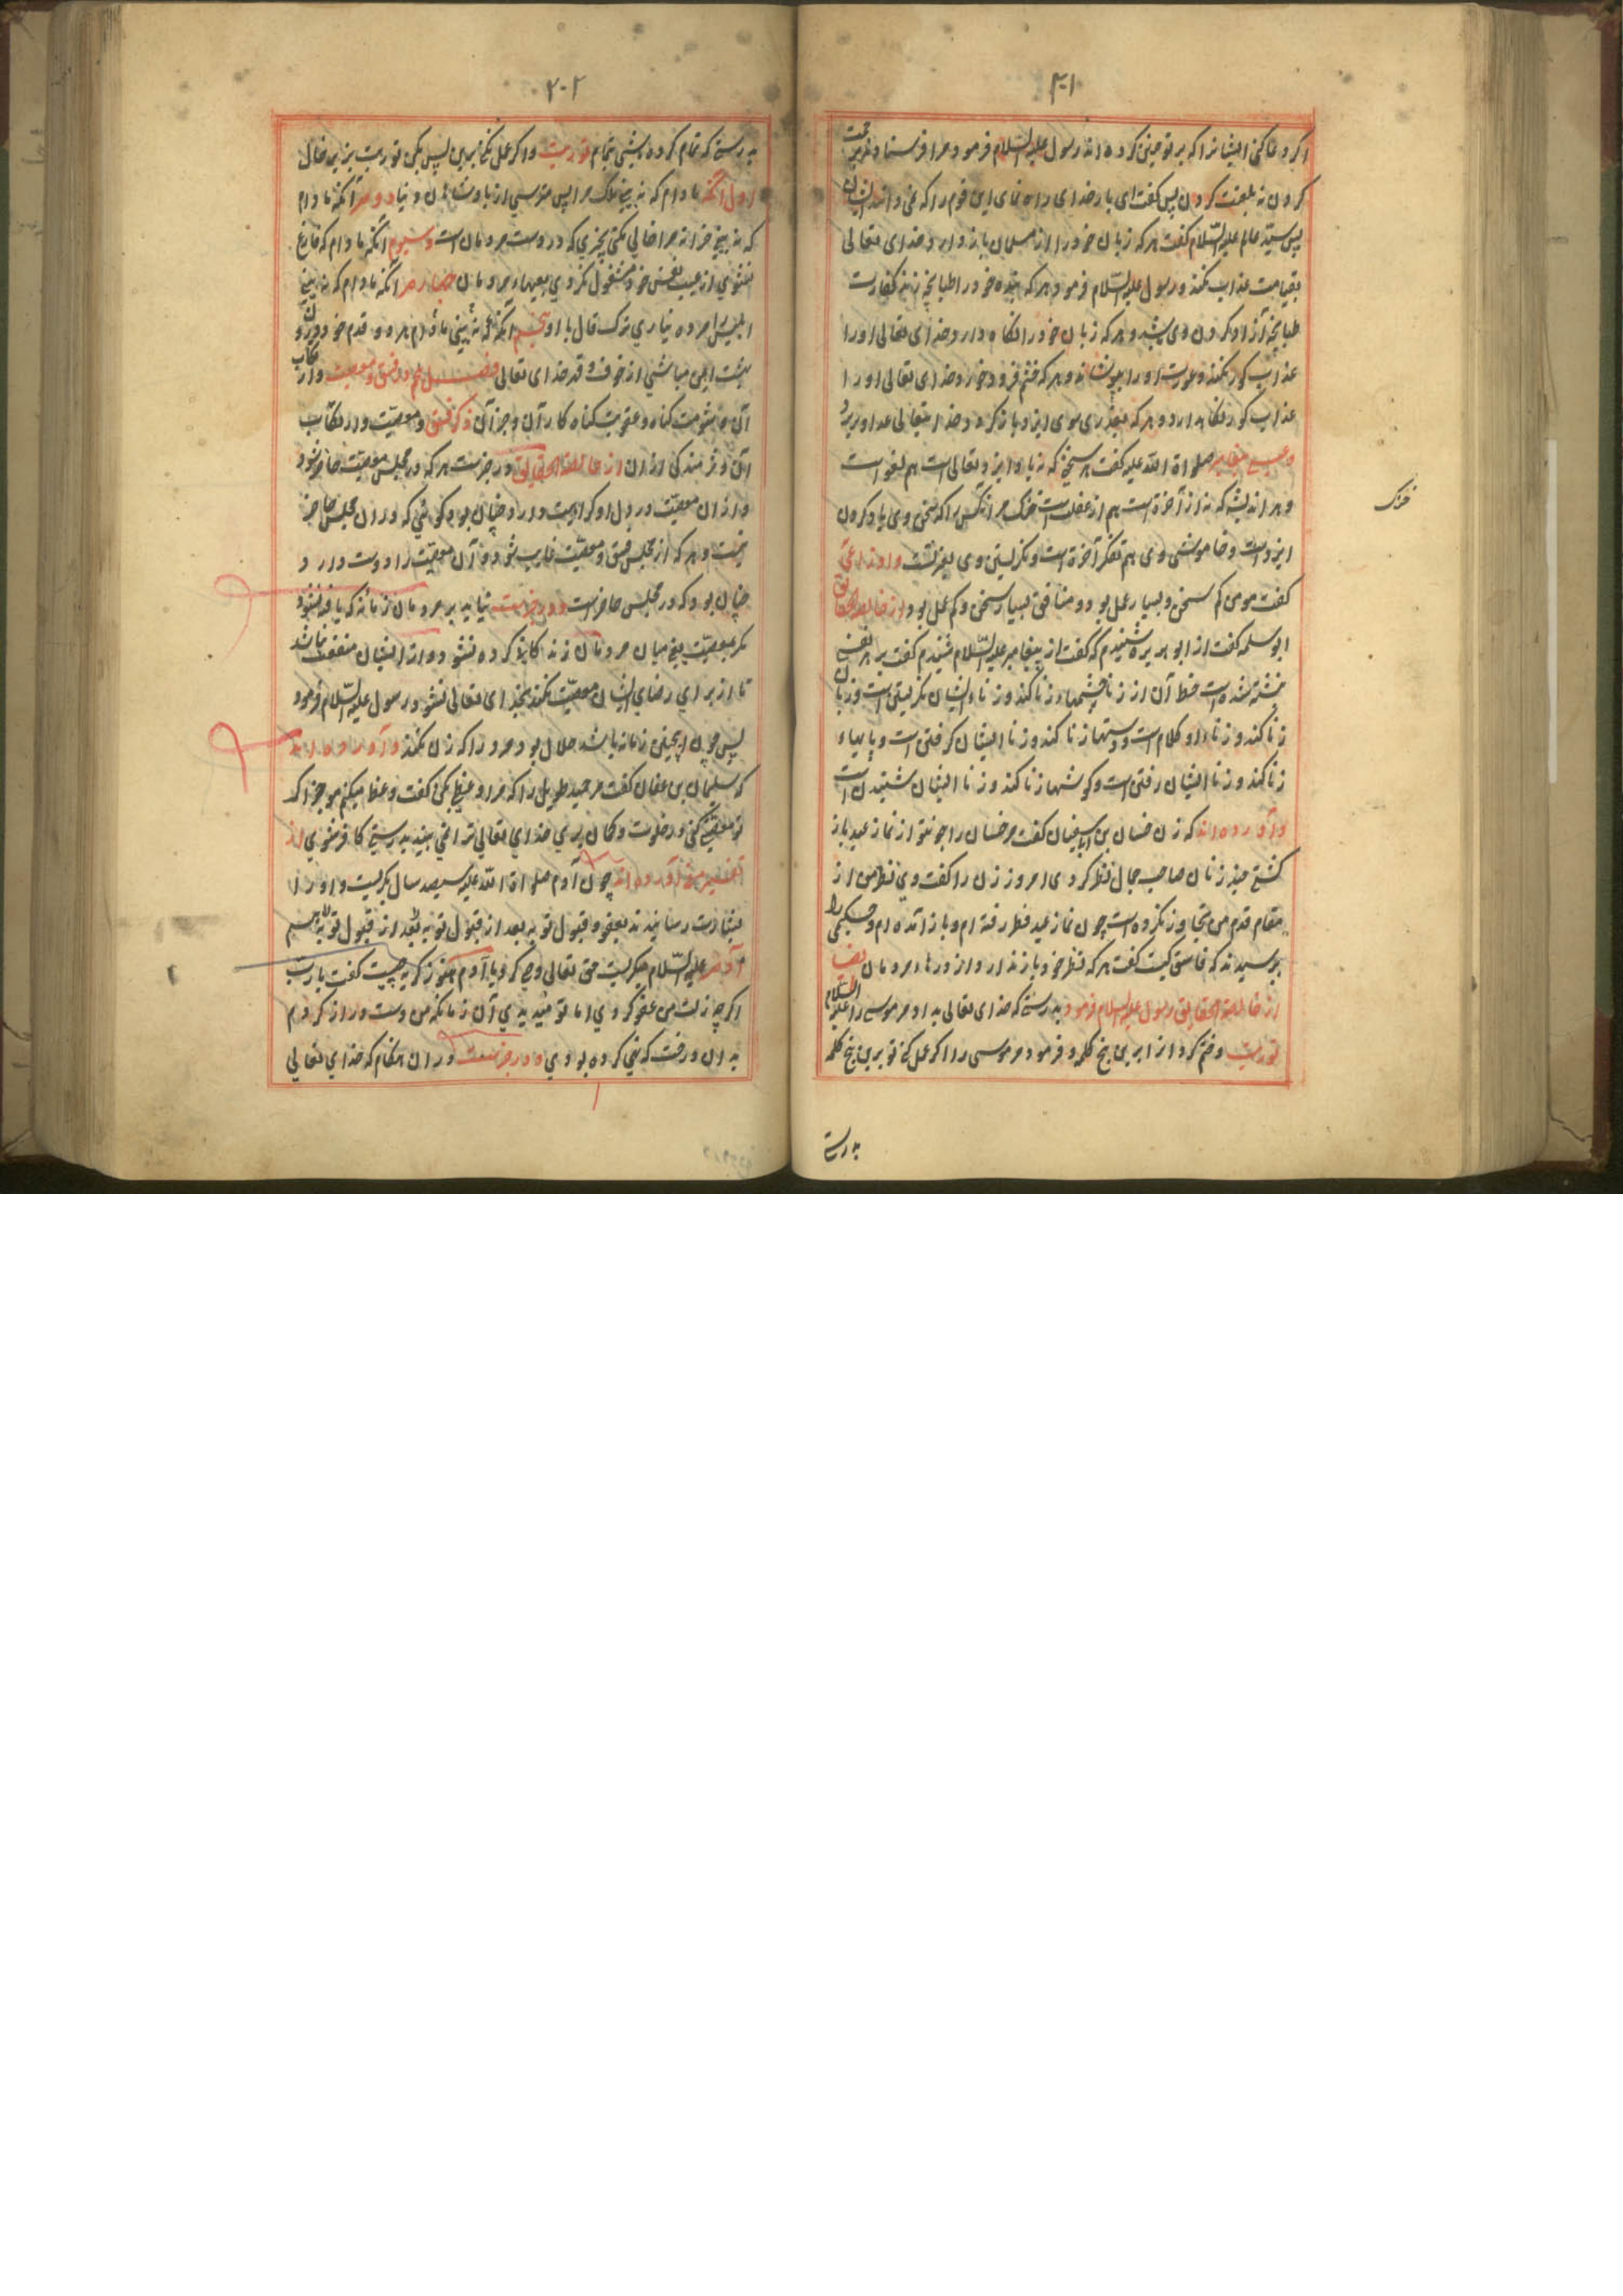 ۲۰۱
اگر دعا کنی ایشانرا که بر تو جنین کرده اند رسول علیه السلام فرمود مرا فرستاد خدای رحمت
کردن نه بلعنت کردن پس گفت ای بار خدای راه نمای این قوم را که نمی دانند ایشان
پس سید عالم علیه السلام گفت هر که زبان خود را از مسلمان باز دارد خدای تعالی
بقیامت عذاب نکند و رسول علیه السلام فرمود هر که بنده خود را طپانچه زند کفارت
طپانچه آزاد کردن وی باشد و هر که زبان خود را نگاه دارد خدای تعالی او را
عذاب گور نکند و عورت او را بپوشاند و هر که خشم فرو خورد خدای تعالی او را
عذاب گور نگاه دارد و هر که بعذری سوی ایزد باز گردد خدا یتعالی عذر او بپذیرد
و عیسی پیغامبر صلواة الله علیه گفت هر سخنی که نه یاد ایزد تعالی است هم لغو است
و هر اندیشه که نه از آخرة است هم از غفلت است خنک مر آنکس را که سخن وی یاد کردن
ایزد است و خاموشی وی هم تفکر آخرة است و نگرستین وی بعبرتست و اوزاعی
گفت مومن کم سخن و بسیار عمل بود و منافق بسیار سخن و کم عمل بود و از خالصة الحقایق
ابو سلمه گفت از ابو هریره شنیدم که گفت از پیغامبر علیه السلام شنیدم گفت بر هر نفسی
نبشته شده است حظ آن از زنا چشمها زنا کند و زناء ایشان نگریستن است و زبان
زنا کند و زناء او کلام است و دستها زنا کند و زنا ایشان گرفتن است و پایهاء
زنا کند و زنا ایشان رفتن است و گوشها زنا کند و زنا ایشان شنیدن است
و آورده اند که زن حسان بن ابی سفیان گفت مر حسان را چو تو از نماز عید باز
گشتی چند زنان صاحب جمال نظر کردی امروز زن را گفت وی نظر من از
مقام قدم من تجاوز نکرده است چون نماز عید فطر رفته ام و باز آمده ام و حکیمی را
پرسیدند که فاسق کیست گفت هر که نظر خود باز ندارد از درهاء مردمان ایضا
از خالصة الحقایق رسول علیه السلام فرمود بدرستی که خدای تعالی بداد مر موسی را علیه السلام
توریت و ختم کرد از ابر بن پنج کلمه و فرمود مر موسی را اگر عمل کنی تو برین پنج کلمه
بدرستی
خنک
۲۰۲
بدرستی که تمام کرده باشی تمام توریت و اگر عمل نکنی برین پس نکن توریت بزیر خال
اول آنکه مادام که نه بینی ملک مرا پس مترسی از پادشاهان دنیا دوم آنکه مادام
که نه بینی خزانه مرا خالی مکن چیزی که در دست مردمان است و سیوم آنکه مادام که فارغ
نشوی از عیب نفس خود مشغول نگردی بعیبهاء مردمان چهارم آنکه مادام که نه بینی
ابلیس را مرده نیاری ترک قتال با او پنجم آنکه مادام نه بینی هر دو قدم خود درون
بهشت ایمن مباشی از خوف و قهر خدای تعالی فصل نهم در فسق و معصیت و ارتکاب
آن و شومت گناه و عقوبت گناه کار آن و جز آن ذکر فسق و معصیت و ارتکاب
آن و شرمندگی از آن از خالصة الحقایق در خبرست هر که در مجلس معصیت حاضر شود
و از آن معصیت در دل او کراهیت دارد چنان بود گوئی که در آن مجلس حاضر
نیست و هر که از مجلس فسق و معصیت غایب شود و آن معصیت را دوست دارد
چنان بود که در مجلس حاضرست و در خبرست بیاید بر مردمان زمانه که یافته نشود
مگر بمعصیت یعنی میان مردمان زندگانی کرده نشود و از ایشان منفعت نباشد
تا از برای رضای ایشان معصیت نکند بخدای تعالی نشود رسول علیه السلام فرمود
پس چون اینچنین زمانه باشد حلال بود مرد را که زن نکند و آورده اند
که سلیمان بن عفان گفت مر حمید طویل را که مرا وعظ بکن گفت وعظ میکنم موجز اگر
تو معصیتی کنی در خلوت و گمان بری خدای تعالی ترا نمی بیند بدرستی کافر شوی از
تفسیر مغنی آورده اند چون آدم صلواة الله علیه سیصد سال بگریست و او را
بشارت رسانیدند بعفو و قبول توبه بعد از قبول توبه بعد از قبول توبه هم
آدم علیه السلام میگریست حق تعالی وحی کرد یا آدم هنوز گریه چیست گفت یا رب
اگر چه زلت من عفو کردی اما تو میدیدی آن زمانکه من دست دراز کردم
بدان درخت که نهی کرده بودی و در خبرست در آن هنگام که خدای تعالی